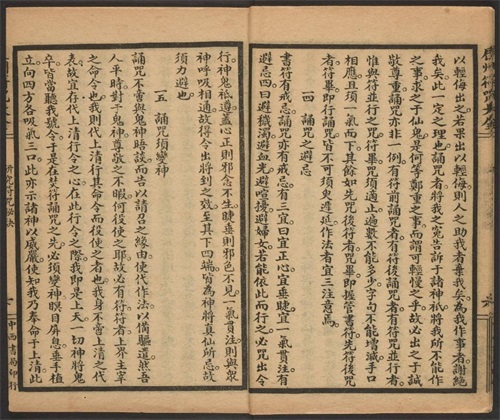 以輕侮出之若果出以輕侮則人之助我者棄我矣為我作事者謝絕
我矣此一定之理也誦咒者將我之冤告訴于諸神祇將我所不能作
之事求之于仙鬼是何等鄭重之事而謂可輕慢之乎故必出之于誠
敬尊重誦咒亦非一例有符前誦咒者有符後誦咒者有符咒並行者
惟與符並行之咒符畢咒須適止遍數不能多少字句不能增減手口
相應且須一氣而下其餘如先咒後符者咒畢即握管書符先符後咒
者符畢即行誦咒皆不可須臾遷延作法者宜三注意焉
一四 誦咒之避忌
書符有戒忌誦咒亦有戒忌有三宜曰宜正心宜垂睫宜一氣貫注有
避忌四曰避穢濁避血光避喧擾避婦女若能依此而行之必咒出令
行神鬼祗遵蓋心正則邪念不生睫垂則邪色不見一氣貫注則與眾
神呼吸相通故得令出將到之效至其下四端皆為神將真仙所忌故
須力避也
一五 誦咒須變神
誦咒不啻與鬼神晤談而告以請召之緣由使代作法以備驅遣然吾
人平時對于鬼神尊敬之不暇何役使之耶故必有符符者上界主宰
之命令也我則代上清行其命令而役使之者也我身不啻上清之代
表故宜存我代上清行令之心在此行令之際我即是上天一切神將鬼
卒皆當聽我號令于是在焚符誦咒之先必須變神瞑目屏息垂手植
立向四方各吸氣三口此亦示諸神以威嚴使知我乃奉命于上清此
中西書局印行